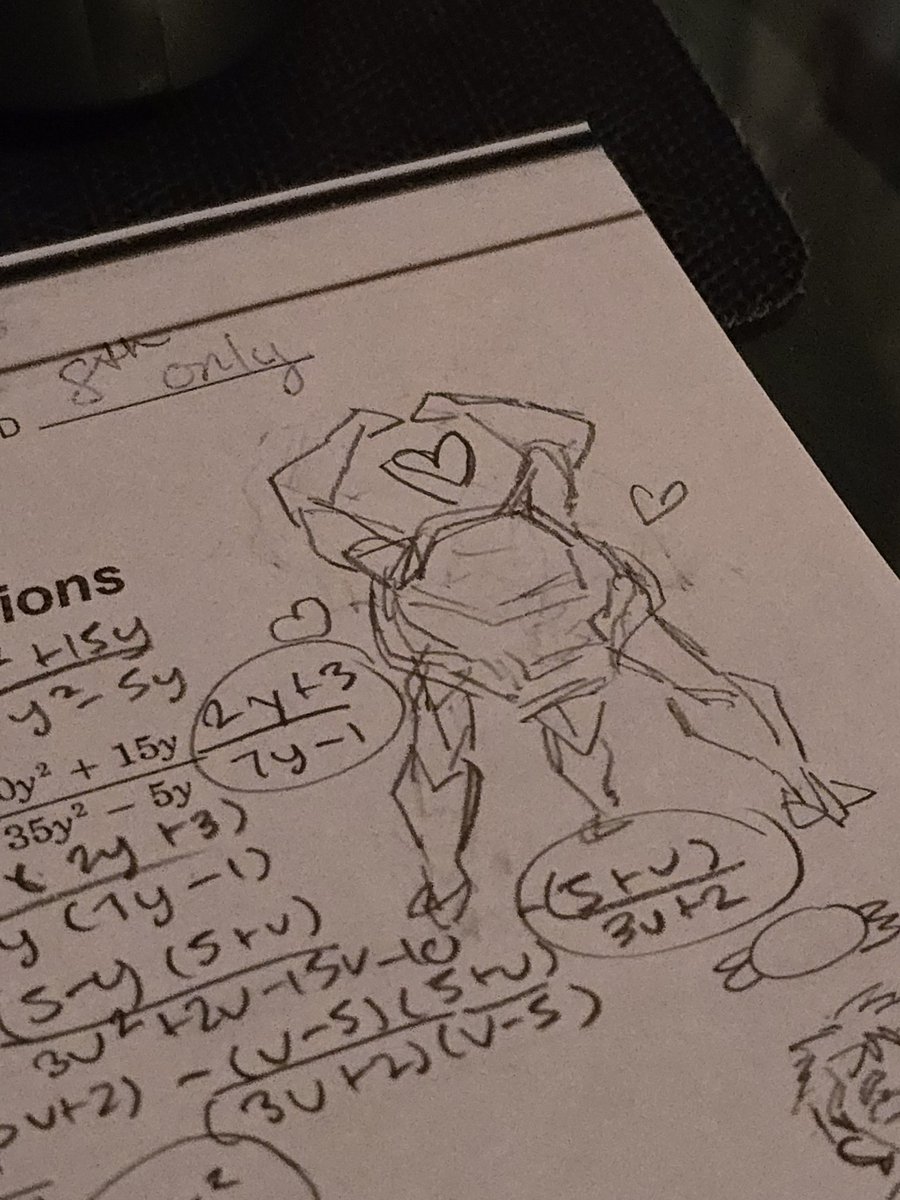 D 8th only
ions
+15y
y²-5y
2y+3
7y-1
0y² + 15y
35y² − 5y
(2y+3)
y(7y-1)
-(5+v)
3v+2
(5-v)(5+v)
3v²+2v-15v-10
-(v-5)(5+v)
v+2)
(3v+2)(v-5)
2